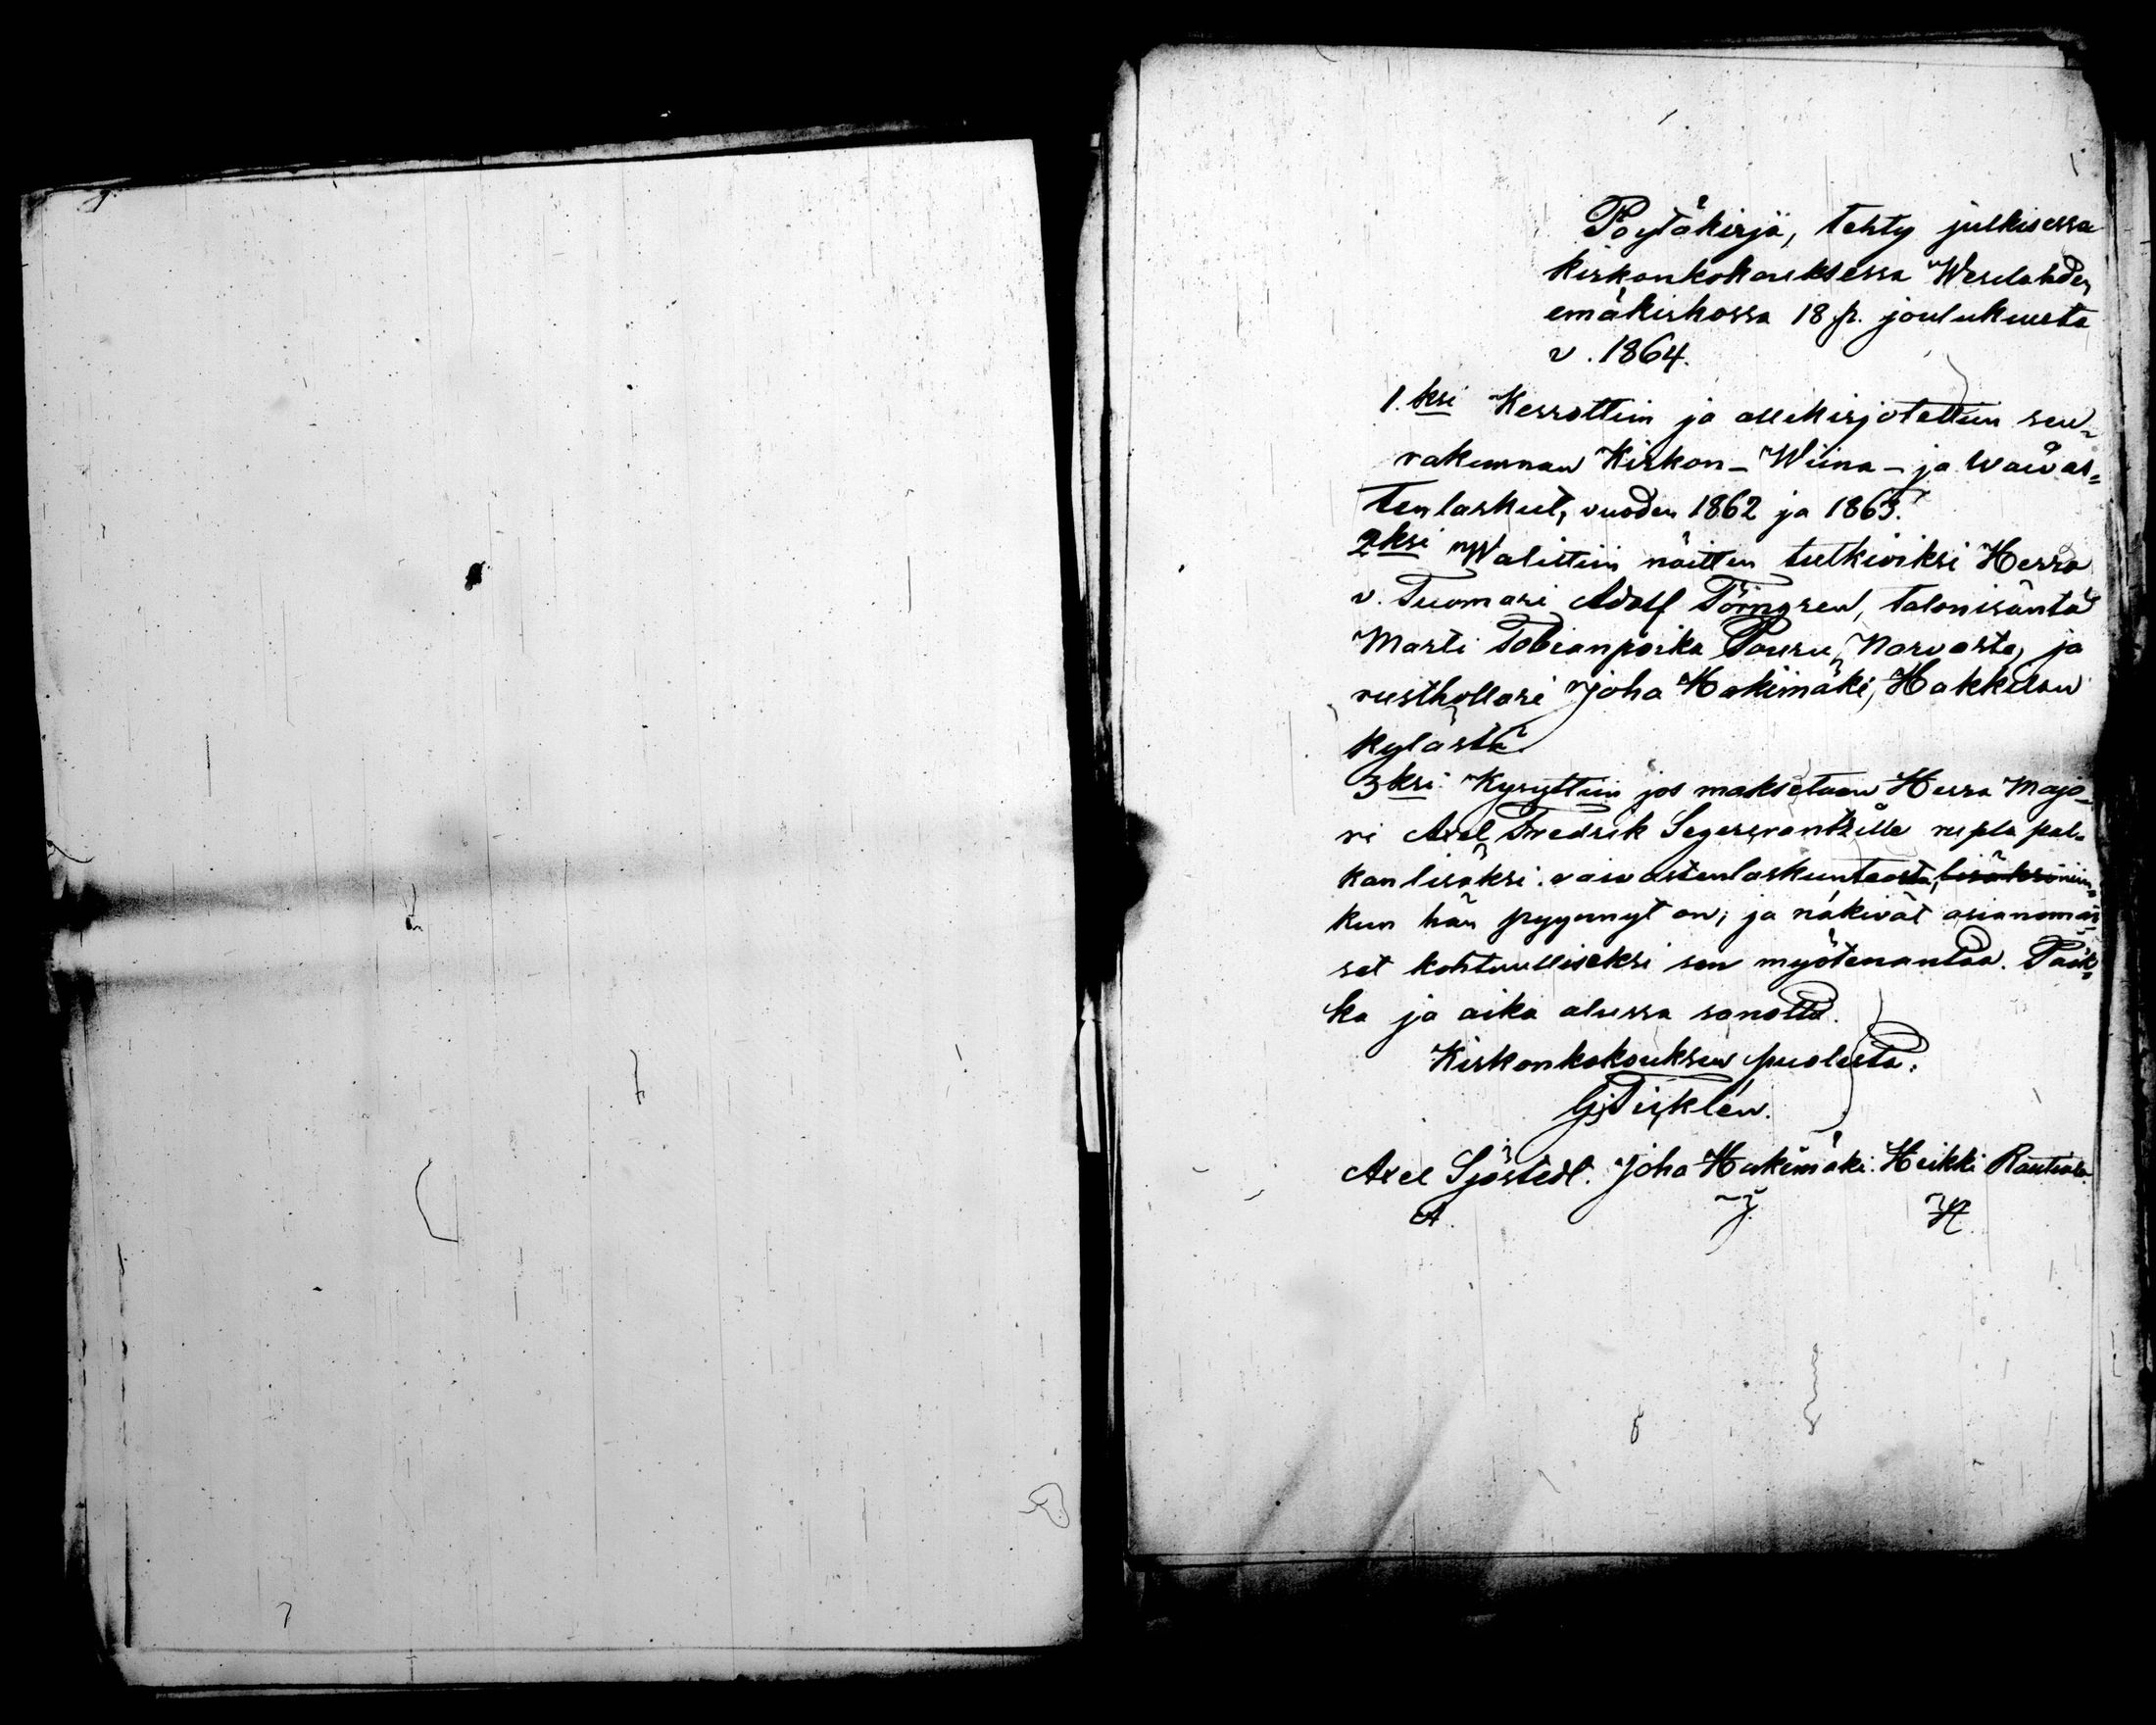 Pöytäkirja, tehty julkisessa
kirkonkokouksessa Wesilahden
emäkirkossa 18 p. joulukuuta
v. 1864.
1.ksi Kerrottiin ja allekirjotettiin seu-
rakunnan Kirkon- Wiina- ja waivas-
tenlaskut, vuoden 1862 ja 1863.
2ksi Walittiin näitten tutkiviksi Herra
v. Tuomari Adolf Törngren, talonisäntä
Matti Tobianpoika Pouru, Narvasta, ja
rusthollari Joha Hakimäki, Hakkilan
kylästä.
3ksi Kysyttiin jos maksetaan Herra Majo-
ri Axel Fredrik Segercrantzille rupla pal-
kan lisäksi vaivastenlaskunteosta, lisäksi niin-
kun hän pyynnyt on; ja näkivät asianomai-
set kohtuulliseksi sen myötenantaa. Paik-
ka ja aika alussa sanottu.
Kirkonkokouksen puolesta.
Axel Sjöstedt. Joha Hakimäki. Heikki Rautiala.
A. J. H.